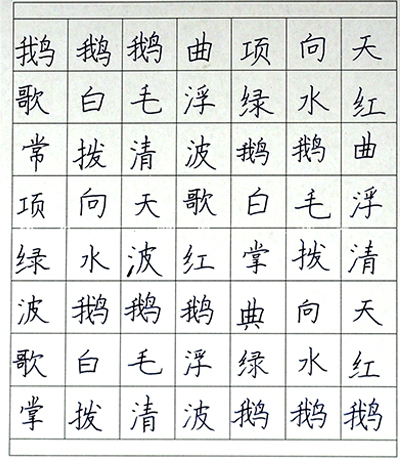 鹅鹅鹅曲项向天
歌白毛浮绿水红
常拨清波鹅鹅曲
项向天歌白毛浮
绿水波红掌拨清
波鹅鹅鹅典向天
歌白毛浮绿水红
掌拨清波鹅鹅鹅